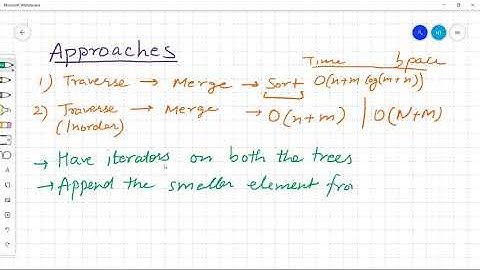 Microsoft Whiteboard
Approaches
Time Space
1) Traverse → Merge → Sort O(n+m log(m+n))
2) Traverse → Merge → O(n+m) | O(N+M)
(Inorder)
→ Have iterators on both the trees
→ Append the smaller element fro